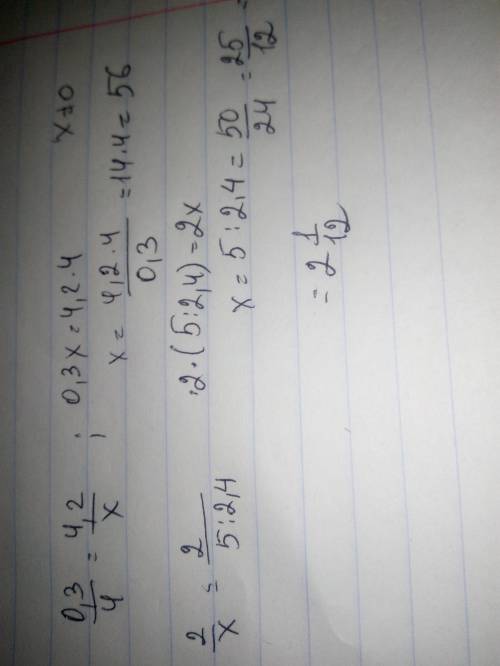 0,3/4 = 4,2/x ; 0,3x = 4,2·4 x≠0
x = 4,2·4/0,3 = 14·4 = 56
2/x = 2/5:2,4 2·(5:2,4) = 2x
x = 5:2,4 = 50/24 = 25/12 =
= 2 1/12